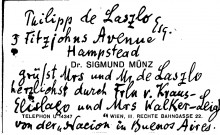 Philipp de Laszlo Esq.
3 Fitzjohns Avenue
Hampstead
Dr. SIGMUND MÜNZ
grüßt Mrs und Mr de Laszlo
herzlichst durch Frln v. Kraus-
und Mrs Walker-Leigh
TELEPHON 14347 WIEN, III. RECHTE BAHNGASSE 22.
von der Nacion in Buenos Aires